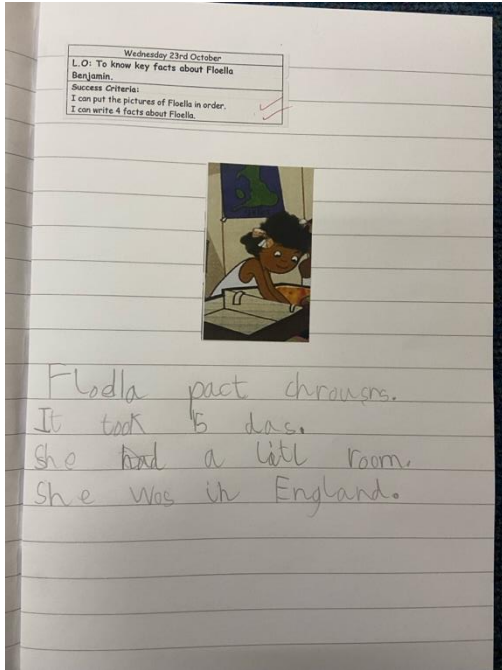 Wednesday 23rd October
L.O: To know key facts about Floella
Benjamin.
Success Criteria:
I can put the pictures of Floella in order.
I can write 4 facts about Floella.
Flodla pact chrousrs.
It took 15 das.
She had a litl room.
She wos in England.